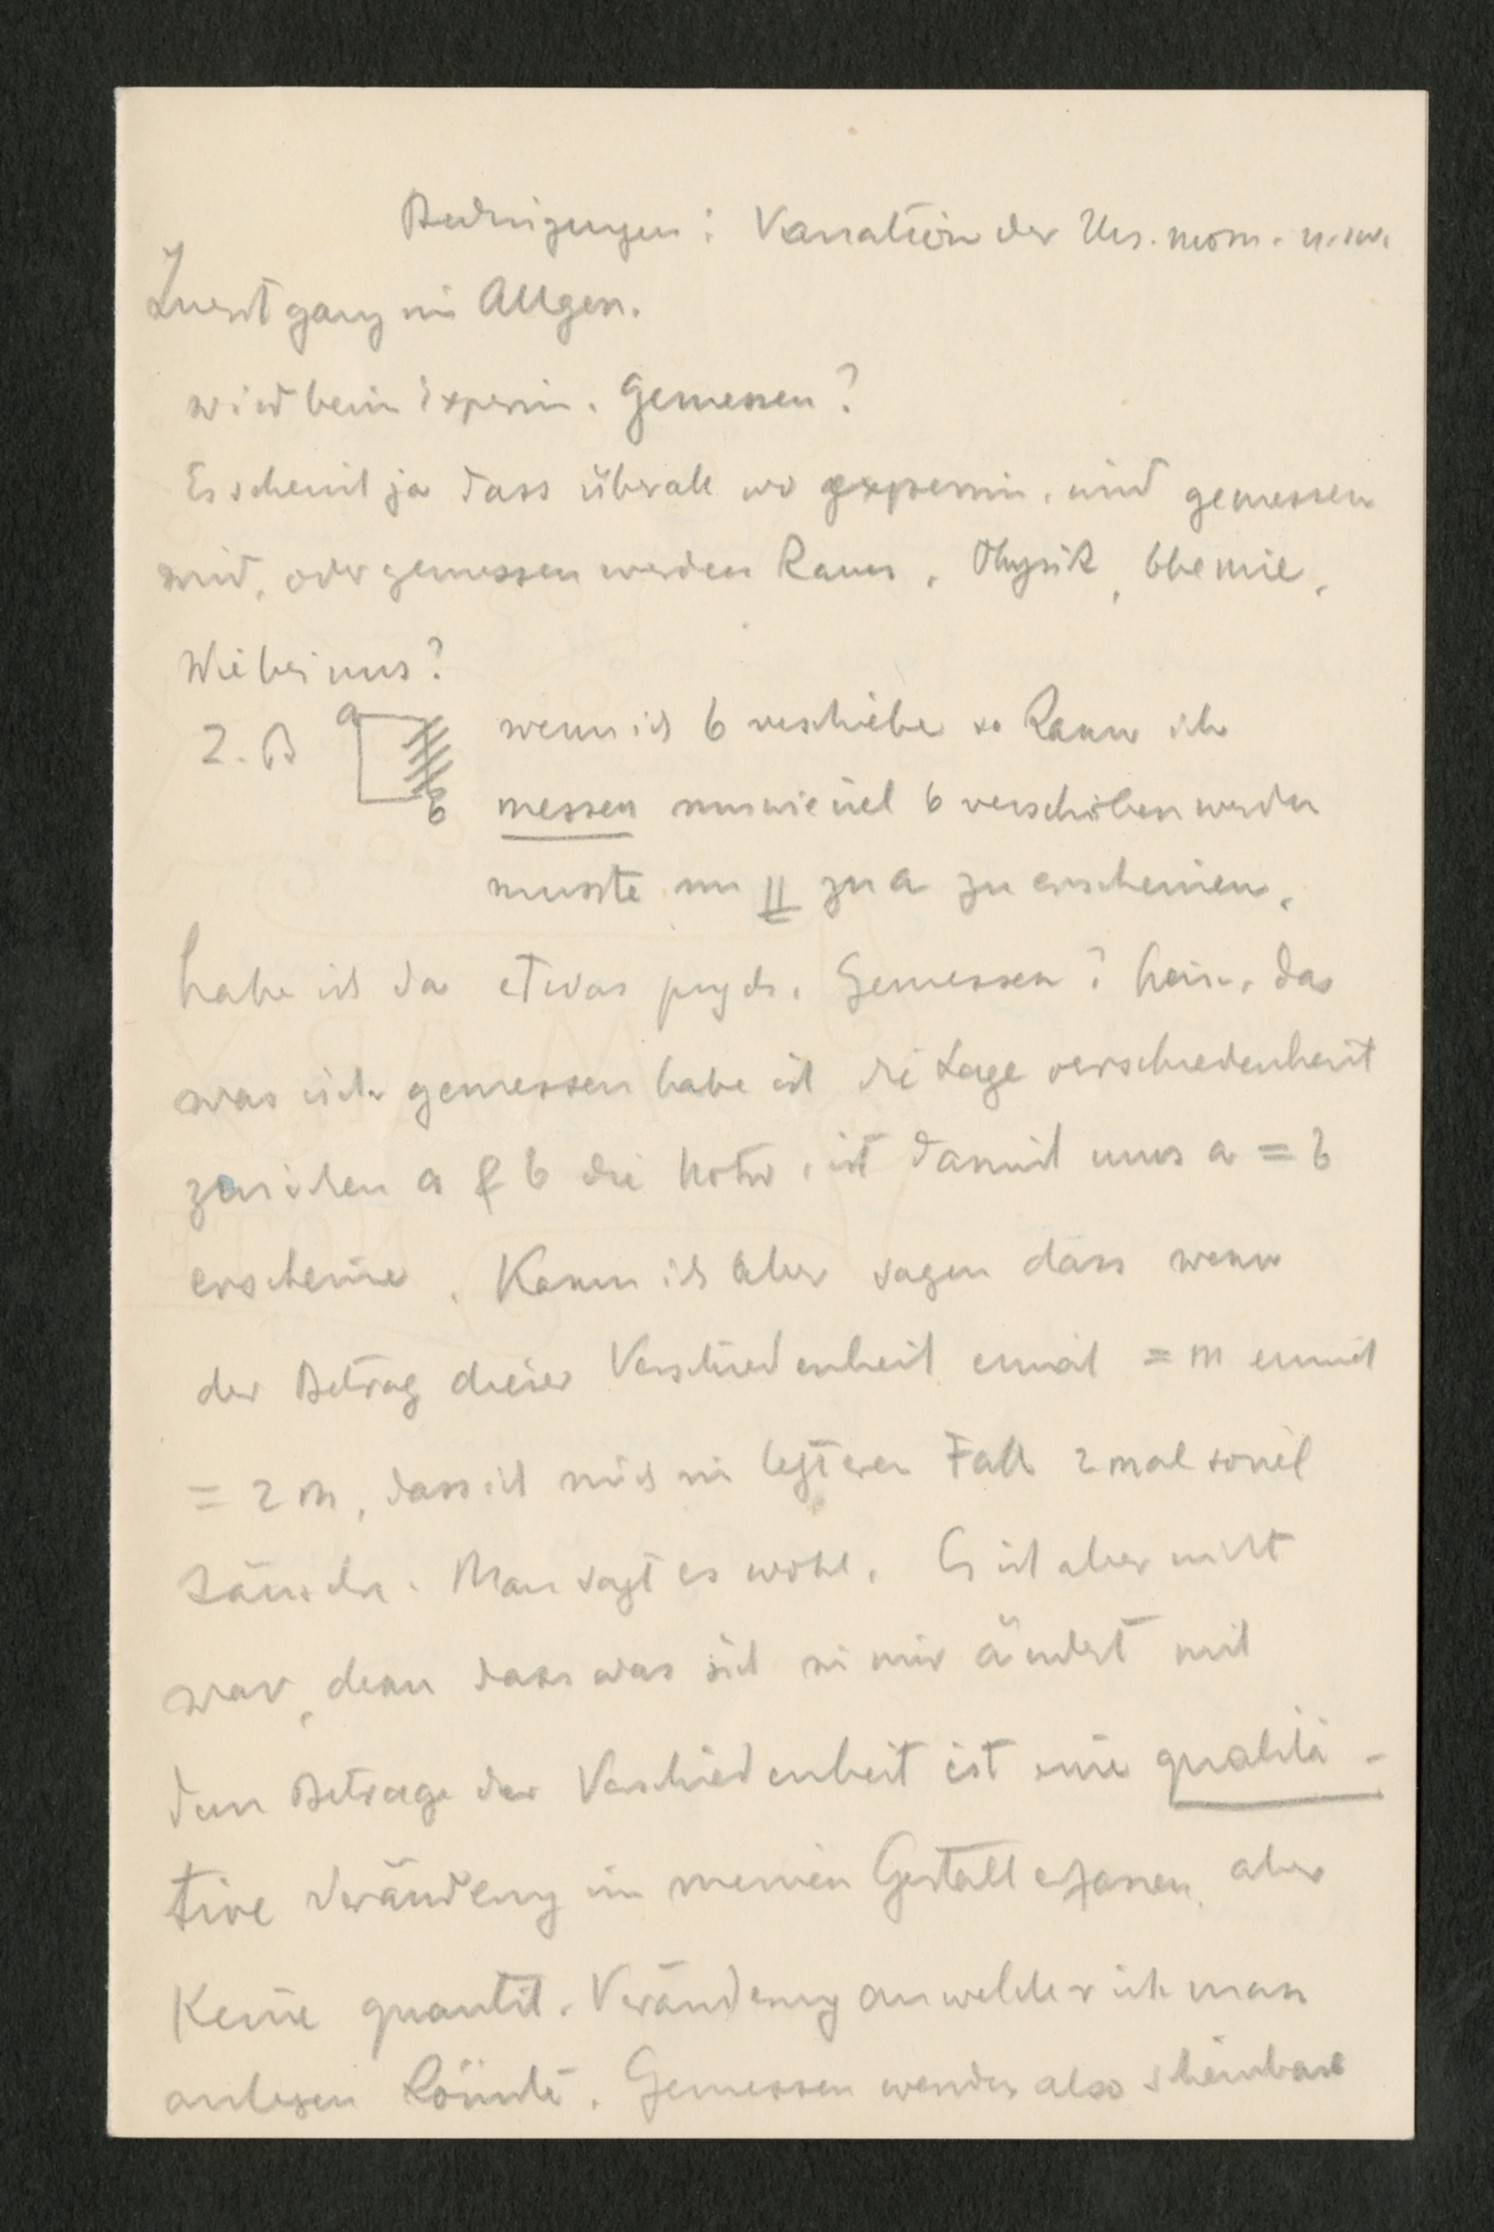 Bedingungen: Variation der Urs. mom. u.sw.
Zuerst ganz im Allgem.
wird beim Experim. Gemessen?
Es scheint ja dass überall wo experim. wird gemessen
wird, oder gemessen werden kann. Physik, Chemie.
Wie bei uns?
Z. B
a
b
wenn ich b verschiebe so kann ich
messen um wieviel b verschoben werden
musste um || zu a zu erscheinen.
habe ich da etwas psych. Gemessen? Nein, das
was ich gemessen habe ist die Lage verschiedenheit
zwischen a & b die notw. ist damit uns a = b
erscheine. Kann ich aber sagen dass wenn
der Betrag dieser Verschiedenheit einmal = m einmal
= 2 m, dass ich mich im letzteren Fall 2 mal soviel
täusche. Man sagt es wohl. Es ist aber nicht
war, denn dass was sich in mir ändert mit
dem Betrage der Verschiedenheit ist eine qualita-
tive Veränderung in meinem Gestalt erfassen aber
Keine quantit. Veränderung an welcher ich mass
anlegen könnte. Gemessen werden also scheinbare